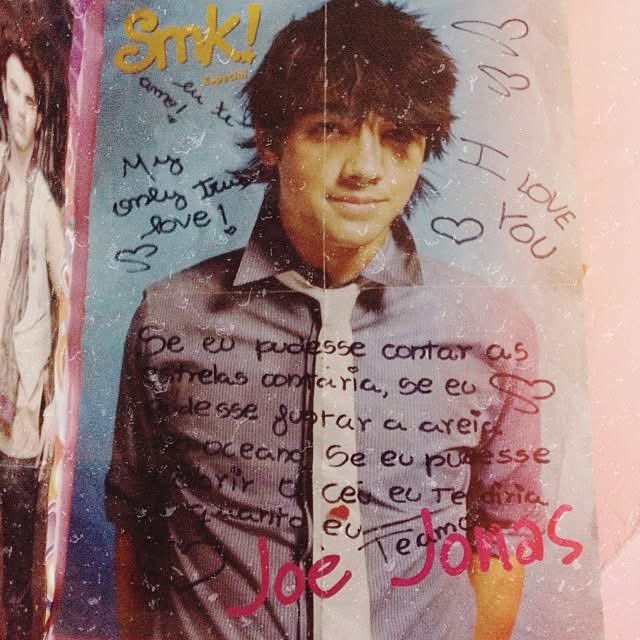 Smk!
eu te
amo!
My
only True
love!
I LOVE
YOU
Se eu pudesse contar as
estrelas contaria, se eu
pudesse juntar a areia
oceano se eu pudesse
abrir o céu eu Te diria
quanto eu Te amo
Joe Jonas